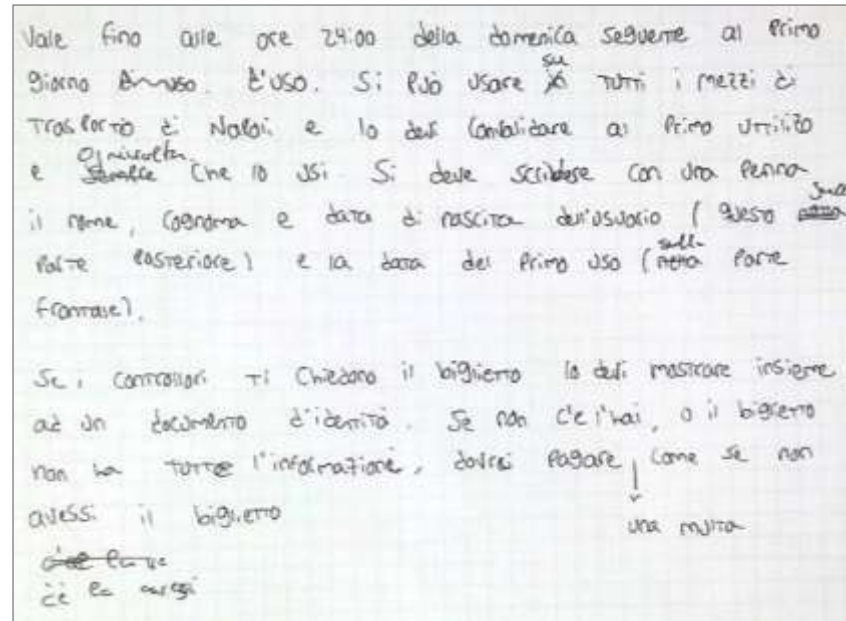 Vale fino alle ore 24:00 della domenica seguente al Primo
giorno d'uso. Si Può usare su TUTTi i mezzi di
TrasPorTo di Napoli e lo devi Convalidare al Primo UTTilizo
e Ogniqualvolta che lo usi. Si deve scrivere con una Penna
il nome, Cognome e data di nascita dell'usuario (questo sulla
ParTe PosTeriore) e la data del Primo uso (sulla ParTe
frontale).
Se i controllori Ti Chiedono il biglietto lo devi mostrare insieme
ad un documento d'identità. Se non c'e l'hai, o il biglietto
non ha TuTTe l'informazione, dovrai Pagare, Come se non
avessi il biglietto
una multa
c'è la avessi